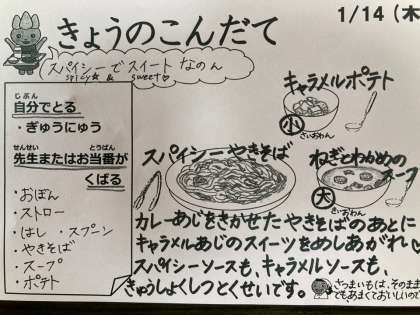 1/14 (木
きょうのこんだて
スパイシーで スイート なのん
spicy☆ & sweet♡
じぶん
自分でとる
・ぎゅうにゅう
せんせい とうばん
先生またはお当番が
くばる
・おぼん
・ストロー
・はし ・スプーン
・やきそば
・スープ
・ポテト
キャラメルポテト
小
さいおわん
スパイシーやきそば
ねぎとわかめの
スープ
大
さいおわん
カレーあじをきかせた やきそばのあとに
キャラメルあじのスイーツをめしあがれ♡
スパイシーソースも、キャラメルソースも、
きゅうしょくしつとくせいです。
さつまいもは、そのまま
でもあまくておいしいので